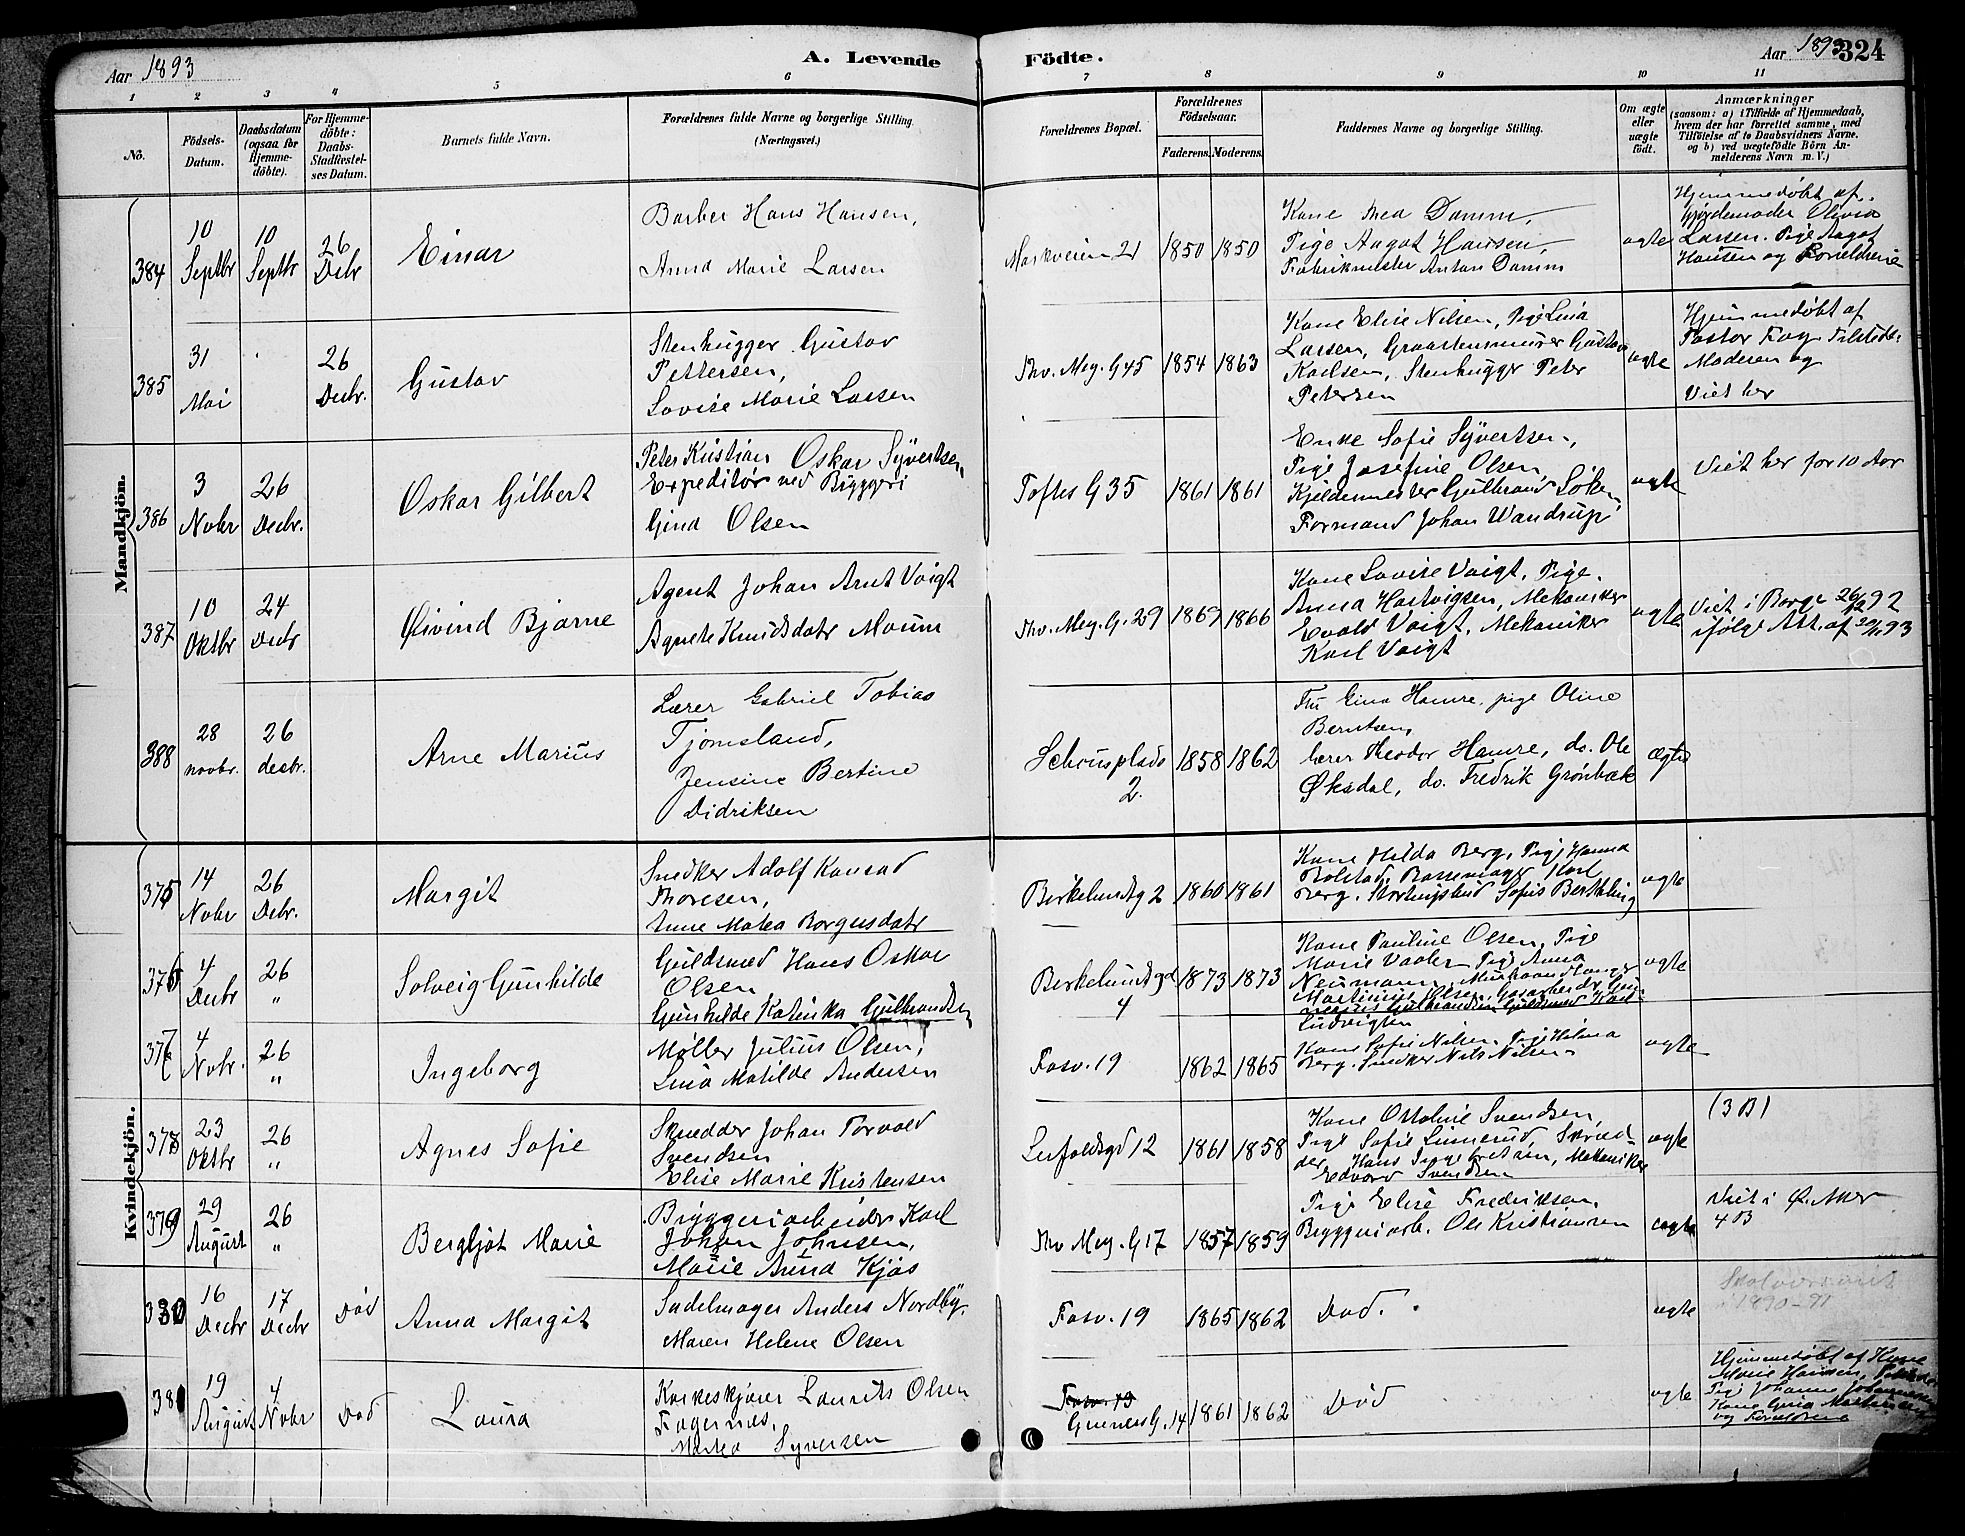 Aar 1893
A. Levende Födte.
Aar 1893 324
1 2 3 4 5 6 7 8 9 10 11
No.
Födsels-Datum.
Daabsdatum (ogsaa for Hjemme-döbte).
For Hjemme-döbte: Daabs-Stadfæstel-ses Datum.
Barnets fulde Navn.
Forældrenes fulde Navne og borgerlige Stilling (Næringsvei.)
Forældrenes Bopæl.
Forældrenes Födselsaar.
Faderens. Moderens.
Faddernes Navne og borgerlige Stilling.
Om ægte eller uægte födt.
Anmærkninger
(saasom: a) i Tilfælde af Hjemmedaab,
hvem der har forrettet samme, med
Tilföielse af to Daabsvidners Navne.
og b) ved uægtefödte Börn An-
melderens Navn m. V.)
Mandkjön.
384
10 Septbr
10 Septbr
26 Decbr
Einar
Barber Hans Hansen,
Anna Marie Larsen
Markveien 21
1850 1850
Kone Thea Damm,
Pige Aagot Hansen,
Fabrikmester Anton Damm
ægte
Hjemmedøbt af
Gjordemoder Olivia
Larsen. Pige Aagot
Hansen og Forældrene
385
31 Mai
26 Decbr.
Gustav
Stenhugger Gustav
Pettersen,
Lovise Marie Larsen
Thv. Mey. G 45
1854 1863
Kone Elise Nilsen, Pige Lina
Larsen, Graastensmurer Gustav
Karlsen, Stenhugger Peter
Petersen
ægte
Hjemmedøbt af
Pastor Fag. Tilstede:
Moderen og
Viet her
386
3 Novbr
26 Decbr.
Oskar Gilbert
Peter Kristian Oskar Syvertsen,
Expeditør ved Bryggeri
Gina Olsen
Toftes G 35
1861 1861
Enke Sofie Syvertsen,
Pige Josefine Olsen,
Kjeldermester Gulbrand
Formand Johan Wandrup
ægte
Viet her for 10 Aar
387
10 Oktbr
24 Decbr
Øivind Bjarne
Agent Johan Arnt Voigt
Agnete Knudsdatr Moum
Thv. Mey. G. 29
1869 1866
Kone Lovise Voigt, Pige
Anna Hartvigsen, Mekaniker
Evald Voigt, Mekaniker
Karl Voigt
ægte
Viet i Borge 26/12 92
ifølge Att. af 93
388
28 novbr.
26 decbr.
Arne Marius
Lærer Gabriel Tobias
Tjomsland,
Jensine Bertine
Didriksen
Schousplads
2.
1858 1862
Fru Gina Hamre, pige Oline
Berntsen,
lærer Theodor Hamre, do. Ole
Øksdal, do. Fredrik Grønbæk
ægte
Kvindekjön.
375
14 Novbr
26 Decbr.
Margit
Snedker Adolf Konrad
Thoresen,
Anne Matea Borgersdatr
Birkelundsg 2
1860 1861
Kone Hilda Berg, Pige Hanna
Rolstad, Karl
Berg, Sofus
ægte
376
4 Decbr
26 "
Solveig Gunhilde
Guldsmed Hans Oskar
Olsen
Gunhilde Katinka Gulbrandsen
Birkelundsgd
4
1873 1873
Kone Pauline Olsen, Pige
Marie Vaaler, Pige Anna
Neumann,
Martinius Olsen, Gasarbeider
Gulbrandsen, Guldsmed Karl
Ludvigsen
ægte
377
4 Novbr.
26 "
Ingeborg
Møller Julius Olsen,
Lina Matilde Andersen
Fosv. 19
1862 1865
Kone Sofie Nilsen, Pige Helma
Berg. Snedker Nils Nilsen
ægte
378
23 Oktbr
26 "
Agnes Sofie
Skrædder Johan Torvald
Svendsen
Elise Marie Kristensen
Leirfaldsgd 12
1861 1858
Kone Ottoline Svendsen,
Pige Sofie Linnerud, Skræd-
der Hans Ingebretsen, Mekaniker
Edvard Svendsen
ægte
(3 B)
379
29 August
26 "
Bergljot Marie
Bryggeriarbeider Karl
Johan Johnsen,
Marie Anna Kjøs
Thv Mey. G 17
1857 1859
Pige Elise Fredriksen,
Bryggeriarb. Ole Kristiansen
ægte
Viet i Ø. Aker
4 B
380
16 Decbr
17 Decbr
Død
Anna Margit
Sadelmager Anders Nordby,
Maren Helene Olsen
Fosv. 19
1865 1862
Død.
ægte
1890-91
381
19 August
4 Novbr
Død
Laura
Korkeskjærer Laurits Olsen
Fagernæs,
Mathea Syversen
Fosv. 19
Grüners G. 14
1861 1862
Død
ægte
Hjemmedøbt af Kone
Marie Hansen,
Pige Johanne Johannesen
Kone Gina
og Forældrene